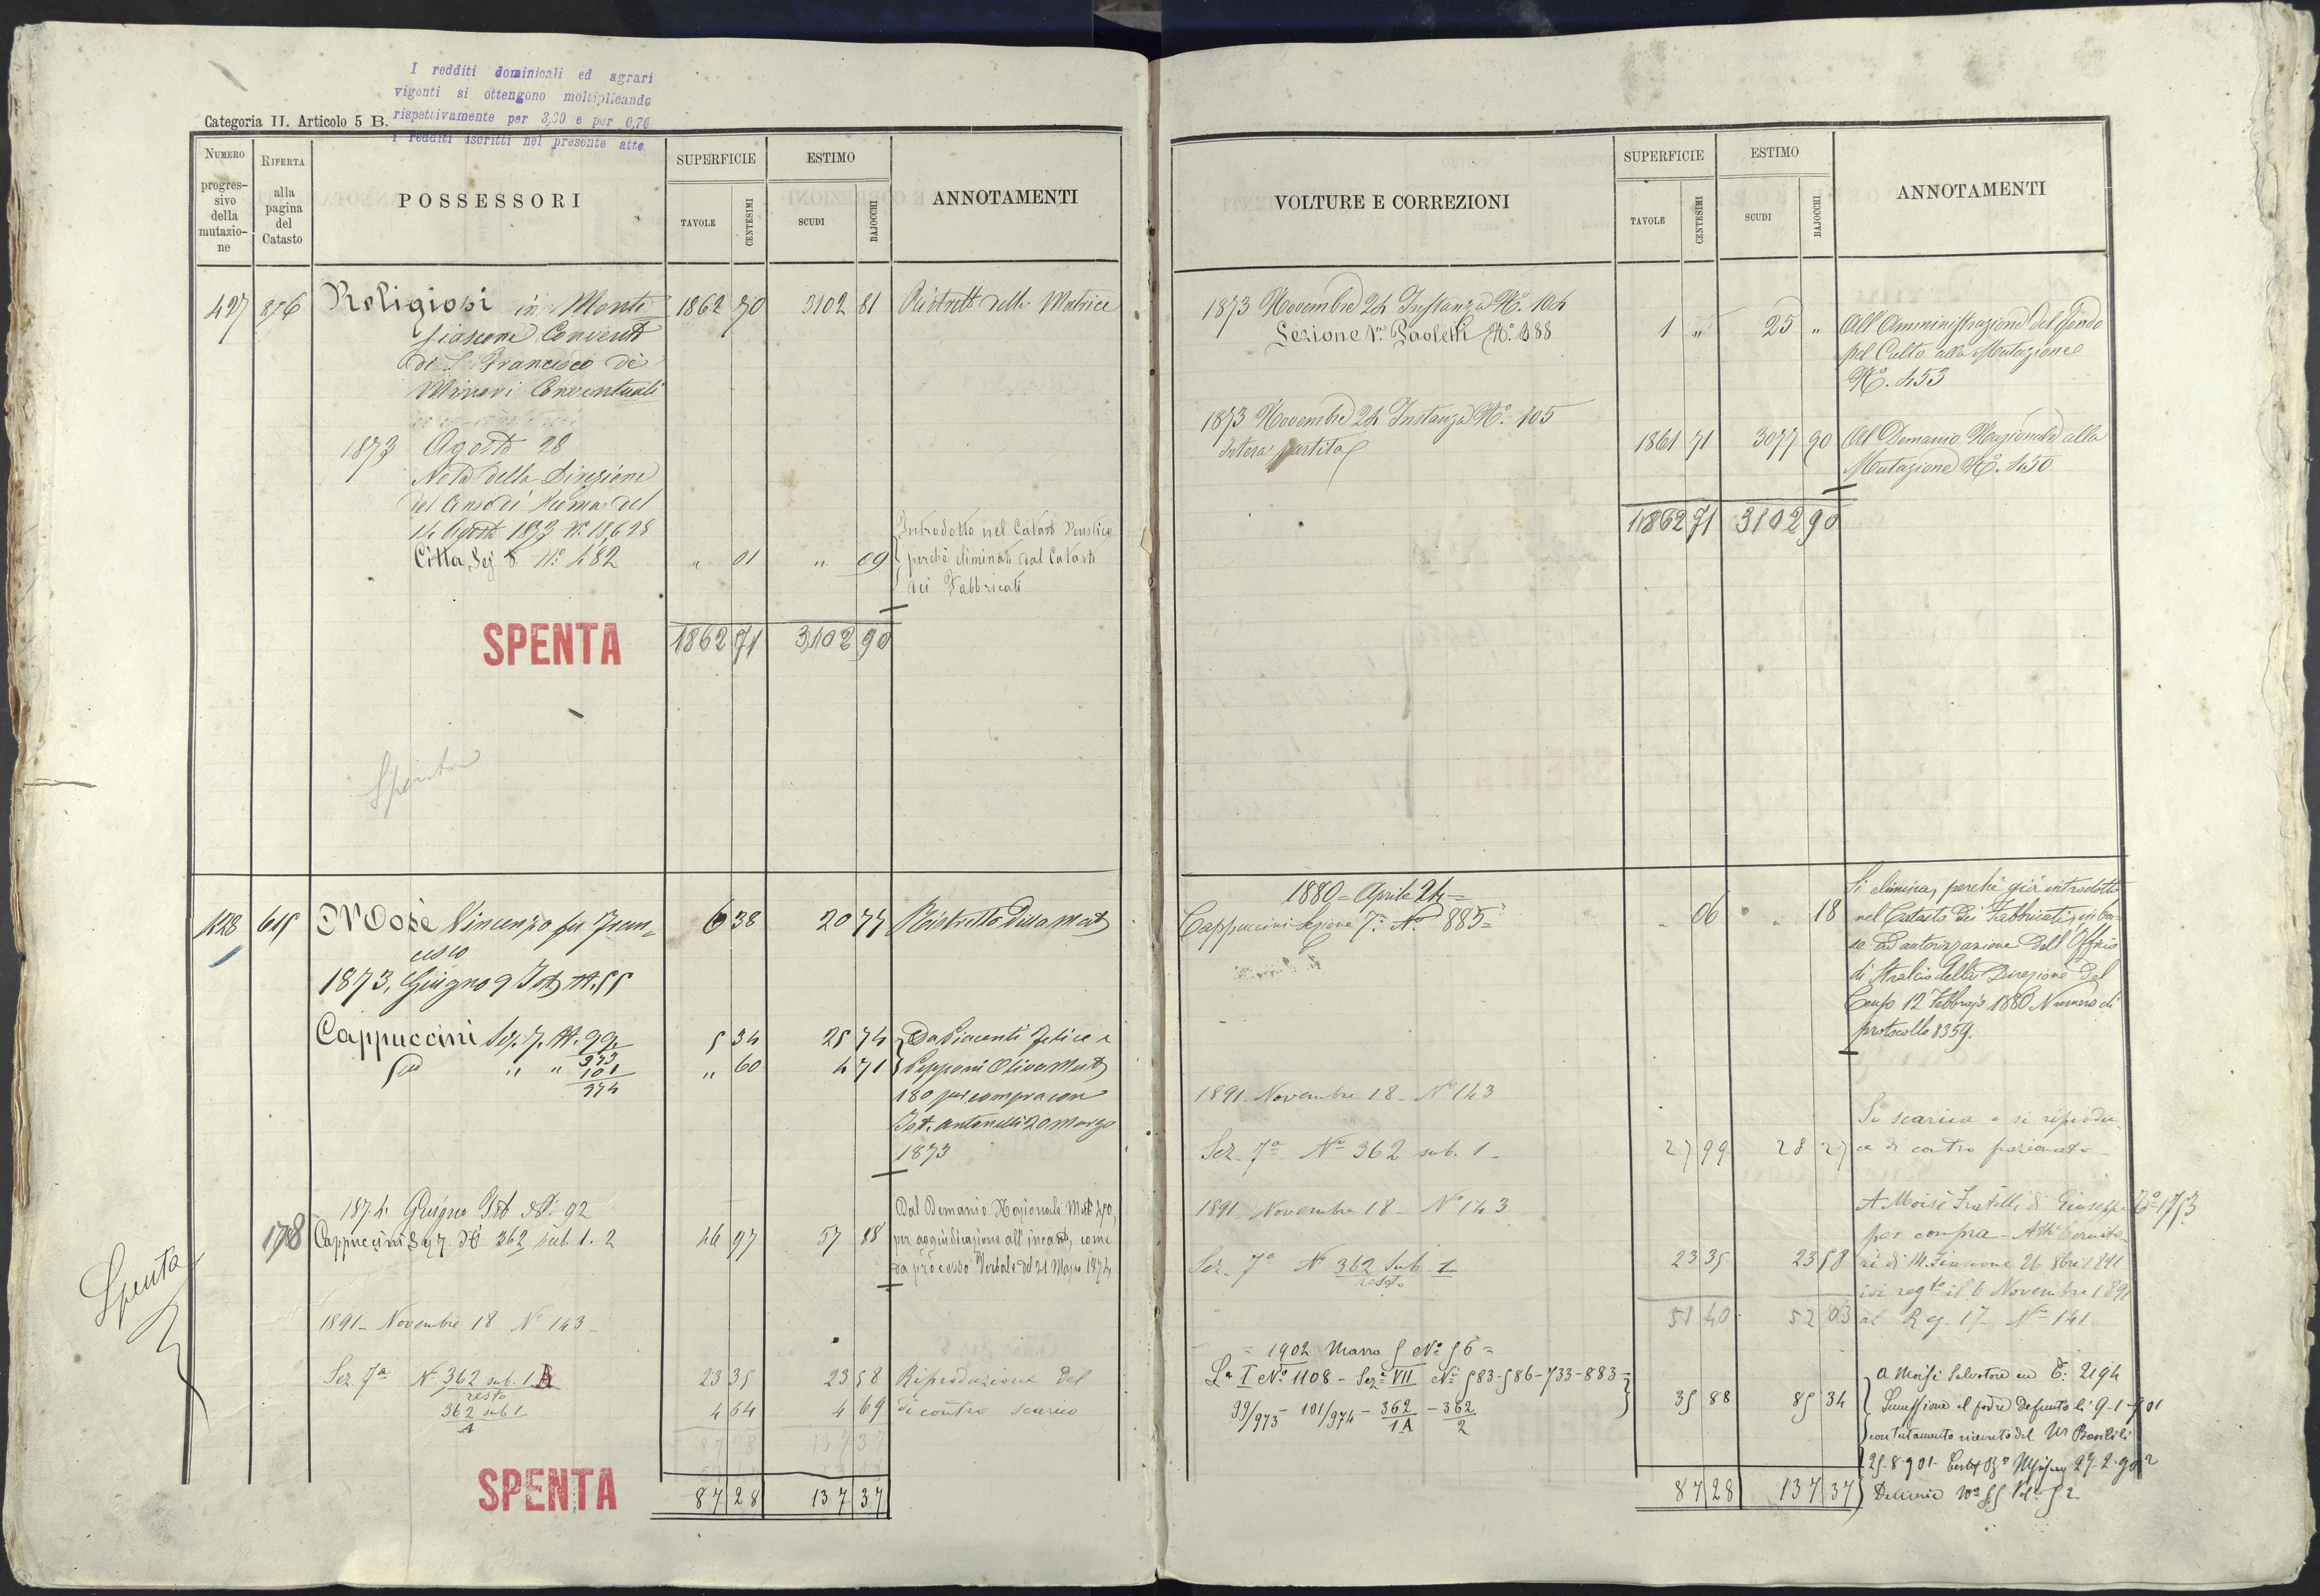 I redditi dominicali ed agrari
vigenti si ottengono moltiplicando
rispettivamente per 3,30 e per 0,70
i redditi iscritti nel presente atto.
Categoria II. Articolo 5 B.
NUMERO progres- sivo della mutazio- ne
RIFERTA alla pagina del Catasto
POSSESSORI
SUPERFICIE
TAVOLE CENTESIMI
ESTIMO
SCUDI BAJOCCHI
ANNOTAMENTI
427 876 Religiosi in Monte 1862 70 3102 81 Ristretto della Matrice
fiascone Convento
di S. Francesco de
Minori Conventuali
1873 Agosto 28
Nota della Direzione
del Censo di Roma del
14 Agosto 1873 N. 18,628
Introdotto nel Catasto Rustico
Città Sez. N. 482 " 01 " 09 perchè eliminato dal Catasto
dei Fabbricati
SPENTA 1862 71 3102 90
Spenta
428 615 Mosè Vincenzo fu Fran- 6 38 20 77 Ristretto della Mat
cesco
1873, Giugno 9 Ist N. 55
Cappuccini Sez. 7. N. 99 5 34 25 74 Da Piacenti Felice e
973
" " 101 " 60 4 71 Pepponi Oliva Mut
974
180 per compra con
Ist. Antonelli 20 Marzo
1873
1874 Giugno Ist N. 92
Dal Demanio Nazionale Mut 450,
178 Cappuccini Sez 7. N. 362 sub. 1. 2 46 97 57 88 per aggiudicazione all'incanto, come
da processo Verbale del 21 Marzo 1874
Spenta
1891 - Novembre 18 N° 143 -
Sez. 7a N. 362 sub. 1 23 35 23 58 Riproduzione del
resto
362 sub 1 4 64 4 69 di contro scarico
A
87 28 137 37
SPENTA 87 28 137 37
VOLTURE E CORREZIONI
SUPERFICIE
TAVOLE CENTESIMI
ESTIMO
SCUDI BAJOCCHI
ANNOTAMENTI
1873 Novembre 24 Instanza N.° 104
Sezione Paoletti N.° 488 1 " 25 " All'Amministrazione del Fondo
pel Culto alla Mutazione
N.° 453
1873 Novembre 24 Instanza N.° 105
Intera partita 1861 71 3077 90 Al Demanio Nazionale alla
Mutazione N.° 450
1862 71 3102 90
1880 = Aprile 24 =
Si elimina, perchè già introdotto
Cappuccini Sezione 7.a N.° 885 = " 06 " 18 nel Catasto dei Fabbricati, in ba-
se ad autorizzazione dell'Officio
di Stralcio della Direzione del
Censo 12 Febbrajo 1880 Numero di
protocollo 8359.
1891 - Novembre 18 - N° 143
Si scarica e si riprodu-
Sez. 7a N° 362 sub. 1 - 27 99 28 27 ce di contro frazionato
1891 - Novembre 18 - N° 143
A Moisè Fratelli di Giuseppe T° 1753
per compra
Sez. 7a N° 362 Sub 1 23 35 23 58 ri di M. Fiascone 26 8bre 1891
resto
ivi regto il 6 Novembre 1891
51 40 52 03 al Reg. 17 N° 141
= 1902 Marzo 5 N° 56 =
Sa I N° 1108 - Seza VII Ni 583-586-733-883 =
99/973 - 101/974 - 362/1A - 362/2 35 88 85 34
A Moisè Salvatore ed T: 2194
Successione al padre defunto li 9-1-901
con testamento ricevuto dal
25-8-901 27-2-902
87 28 137 37 Denunzia N° 55 Vol. 52